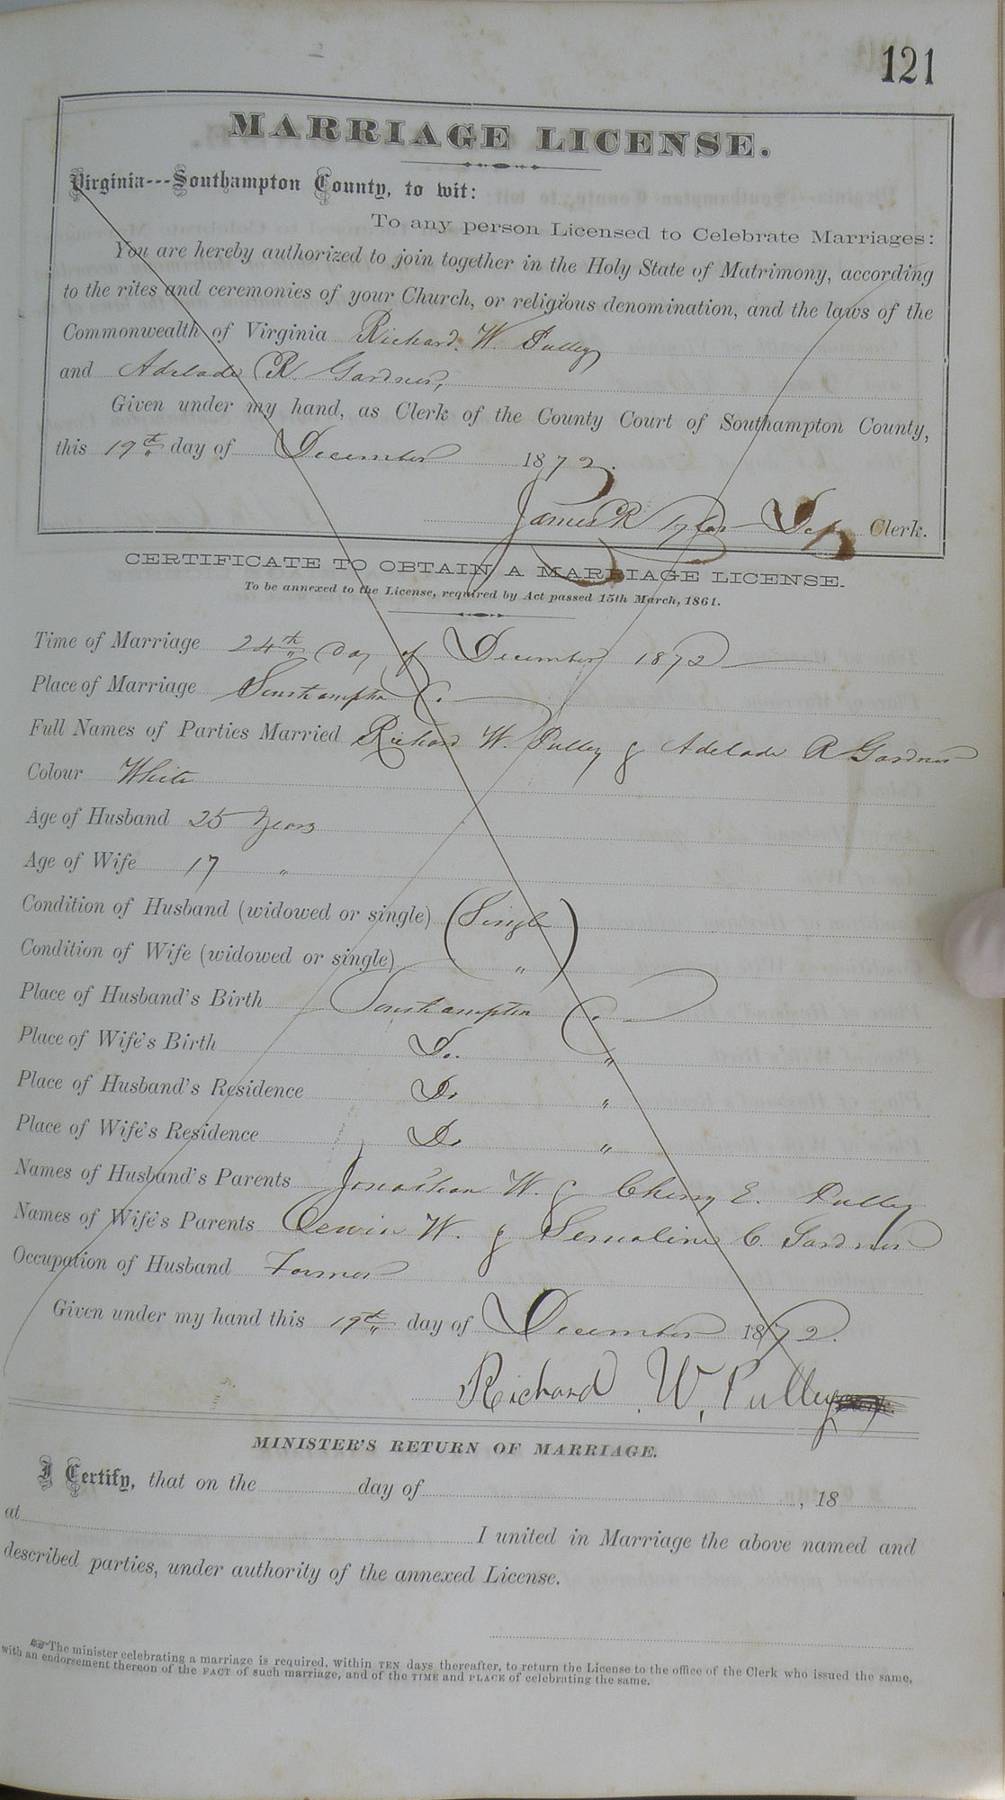 121
MARRIAGE LICENSE.
Virginia---Southampton County, to wit:
To any person Licensed to Celebrate Marriages:
You are hereby authorized to join together in the Holy State of Matrimony, according
to the rites and ceremonies of your Church, or religious denomination, and the laws of the
Commonwealth of Virginia Richard. W. Pulley
and Adelade R. Gardner,
Given under my hand, as Clerk of the County Court of Southampton County,
this 19th day of December 1872.
James R Tyler Dep Clerk.
CERTIFICATE TO OBTAIN A MARRIAGE LICENSE.
To be annexed to the License, required by Act passed 15th March, 1861.
Time of Marriage 24th Day of December 1872
Place of Marriage Southampton Co.
Full Names of Parties Married Richard W. Pulley & Adelade R Gardner
Colour White
Age of Husband 25 Years
Age of Wife 17 "
Condition of Husband (widowed or single) (Single)
Condition of Wife (widowed or single) "
Place of Husband's Birth Southampton Co.
Place of Wife's Birth Do. "
Place of Husband's Residence Do "
Place of Wife's Residence Do "
Names of Husband's Parents Jonathan W. & Cherry E. Pulley
Names of Wife's Parents W. & C. Gardner
Occupation of Husband Farmer
Given under my hand this 19th day of December 1872.
Richard W. Pulley
MINISTER'S RETURN OF MARRIAGE.
I Certify, that on the day of , 18
at I united in Marriage the above named and
described parties, under authority of the annexed License.
The minister celebrating a marriage is required, within TEN days thereafter, to return the License to the office of the Clerk who issued the same,
with an endorsement thereon of the FACT of such marriage, and of the TIME and PLACE of celebrating the same.